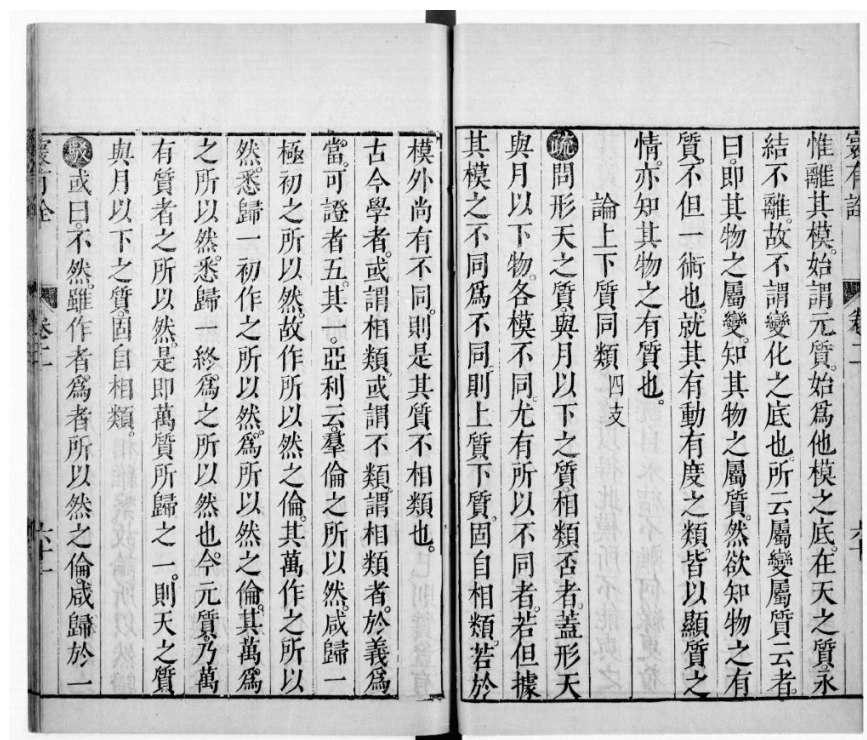 寰有詮
卷二
六十
惟離其模。始謂元質。始爲他模之底。在天之質。永
結不離。故不謂變化之底也。所云屬變屬質云者。
曰。即其物之屬變。知其物之屬質。然欲知物之有
質。不但一術也。就其有動有度之類。皆以顯質之
情。亦知其物之有質也。
論上下質同類 四支
疏問形天之質。與月以下之質。相類否者。蓋形天
與月以下物。各模不同。尤有所以不同者。若但據
其模之不同爲不同。則上質下質。固自相類。若於
模外尚有不同。則是其質不相類也。
古今學者。或謂相類。或謂不類。謂相類者。於義爲
當。可證者五。其一。亞利云。羣倫之所以然。咸歸一
極初之所以然。故作所以然之倫。其萬作之所以
然。悉歸一初作之所以然。爲所以然之倫。其萬爲
之所以然。悉歸一終爲之所以然也。今元質。乃萬
有質者之所以然。是即萬質所歸之一。則天之質
與月以下之質。固自相類。
駁或曰。不然。雖作者爲者所以然之倫。咸歸於一
寰有詮
卷二
六十一